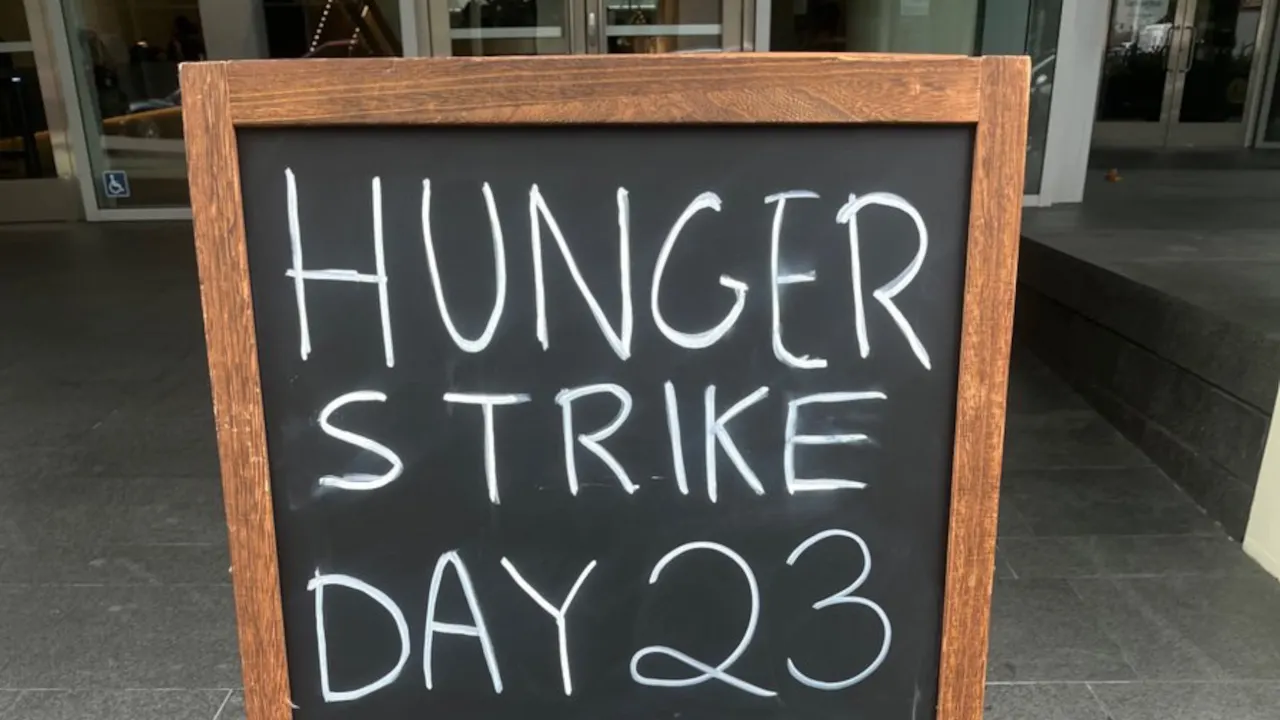 HUNGER
STRIKE
DAY 23